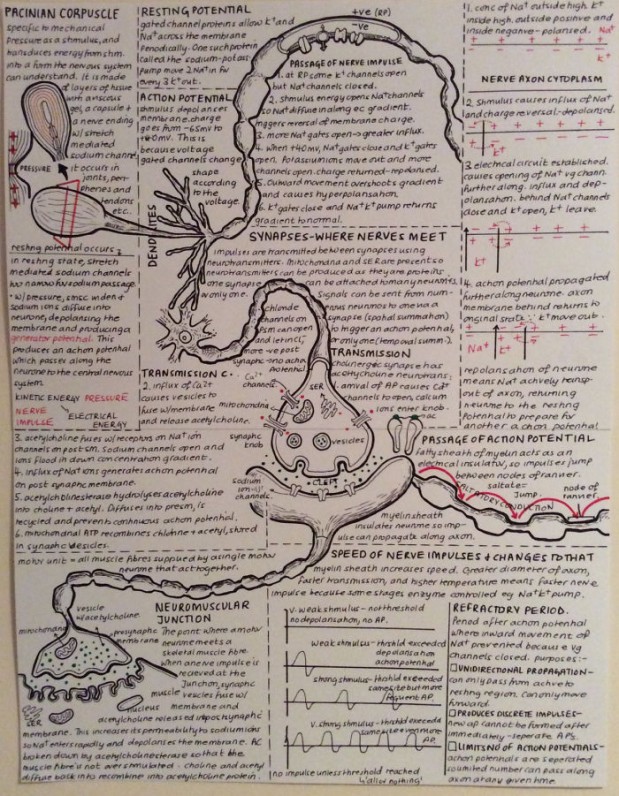 PACINIAN CORPUSCLE
specific to mechanical
pressure as a stimulus, and
transduces energy from stim.
into a form the nervous system
can understand. It is made
of layers of tissue
with a viscous
gel, a capsule +
a nerve ending
w/ stretch
mediated
sodium channel
it occurs in
joints, peri-
tendons
etc.
PRESSURE
resting potential occurs;
in resting state, stretch
mediated sodium channels
too narrow for sodium passage
w/pressure, smsc widen +
sodium ions diffuse into
neurone, depolarising the
membrane and producing a
generator potential. This
produces an action potential
which passes along the
neurone to the central nervous
system
KINETIC ENERGY PRESSURE
NERVE
IMPULSE
ELECTRICAL
ENERGY
RESTING POTENTIAL
gated channel proteins allow K+ and
Na+ across the membrane
periodically. One such protein
called the sodium-potass.
pump move 2Na+ in for
every 3K+ out.
ACTION POTENTIAL
stimulus depolarises
membrane. charge
goes from -65mv to
+40mv. This is
because voltage
gated channels change
shape
according
to the
voltage.
DENDRITES
+ve (RP)
-ve
PASSAGE OF NERVE IMPULSE
1. at RP some K+ channels open
but Na+ channels closed.
2. stimulus energy opens Na+ channels
so Na+ diffuse in along ec gradient.
triggers reversal of membrane charge.
3. more Na+ gates open -> greater influx.
4. When +40mv, Na+ gates close and K+ gates
open. Potassium ions move out and more
channels open. charge returned - repolarised.
5. Outward movement overshoots gradient
and causes hyperpolarisation.
6. K+ gates close and Na+K+ pump returns
gradient to normal.
1. conc of Na+ outside high. K+
inside high. outside positive and
inside negative - polarised. Na+
K+
NERVE AXON CYTOPLASM
2. Stimulus causes influx of Na+
and charge reversal - depolarised.
3. electrical circuit established.
causes opening of Na+ vg chann.
further along. influx and dep-
olarisation. behind Na+ channels
close and K+ open, K+ leave.
K+
4. action potential propagated
further along neurone. axon
membrane behind returns to
original state: K+ move out.
Na+ K+
repolarisation of neurone
means Na+ actively transp-
out of axon, returning
neurone to the resting
potential to prepare for
another action potential
SYNAPSES - WHERE NERVES MEET
impulses are transmitted between synapses using
neurotransmitters. Mitochondria and SER are present so
neurotransmitters can be produced as they are proteins
one synapse can be attached to many neurons,
or only one. Signals can be sent from num-
erous neurons to one via a
synapse (spatial summation)
to trigger an action potential,
or only one (temporal summ.)
chloride
channels on
psm can open
and let in Cl-,
more -ve post
synaptic - no action
potential
TRANSMISSION
cholinergic synapse has
acetylcholine neurotrans.
1. arrival of AP causes Ca2+
channels to open, calcium
ions enter knob.
TRANSMISSION
2. influx of Ca2+
causes vesicles to
fuse w/membrane
and release acetylcholine.
Ca2+
channels
mitochondria
SER
synaptic
knob
vesicles
CLEFT
sodium
ion
channels
3. acetylcholine fuses w/receptors on Na+ ion
channels on post sm. Sodium channels open and
ions flood in down concentration gradient.
4. influx of Na+ ions generates action potential
on post synaptic membrane.
5. acetylcholinesterase hydrolyses acetylcholine
into choline + acetyl. Diffuses into presm, is
recycled and prevents continuous action potential.
6. mitochondrial ATP recombines choline + acetyl, stored
in synaptic vesicles.
PASSAGE OF ACTION POTENTIAL
fatty sheath of myelin acts as an
electrical insulator, so impulses jump
between nodes of ranvier.
saltate=
jump.
node of
ranvier
SALTATORY CONDUCTION
myelin sheath
insulates neurone so imp-
ulse can propagate along axon.
motor unit = all muscle fibres supplied by a single motor
neurone that act together.
SPEED OF NERVE IMPULSES + CHANGES TO THAT
myelin sheath increases speed. Greater diameter of axon,
faster transmission, and higher temperature means faster nerve
impulse because some stages enzyme controlled eg Na+K+ pump.
NEUROMUSCULAR
JUNCTION
The point where a motor
neurone meets a
skeletal muscle fibre.
When a nerve impulse is
recieved at the
junction, synaptic
vesicles fuse w/
membrane and
acetylcholine released into postsynaptic
membrane. This increases its permeability to sodium ions
so Na+ enters rapidly and depolarises the membrane. AC
broken down by acetylcholinesterase so that the
muscle fibre is not over stimulated. choline and acetyl
diffuse back into recombine into acetylcholine protein.
vesicle
w/acetylcholine
mitochondria
presynaptic
membrane
muscle
nucleus
SER
v. weak stimulus - no threshold
no depolarisation, no AP.
weak stimulus - thrshld exceeded
depolarisation
action potential
strong stimulus - thrshld exceeded
same size but more
frequent AP.
v. strong stimulus - thrshld exceeded
same size even more
AP.
no impulse unless threshold reached
'all or nothing'
REFRACTORY PERIOD.
Period after action potential
where inward movement of
Na+ prevented because vg
channels closed. purposes:-
UNIDIRECTIONAL PROPAGATION-
can only pass from active to
resting region. Can only move
forward.
PRODUCES DISCRETE IMPULSES-
new ap cannot be formed after
immediately - seperate APs.
LIMITING OF ACTION POTENTIALS-
action potentials are seperated
so limited number can pass along
axon at any given time.